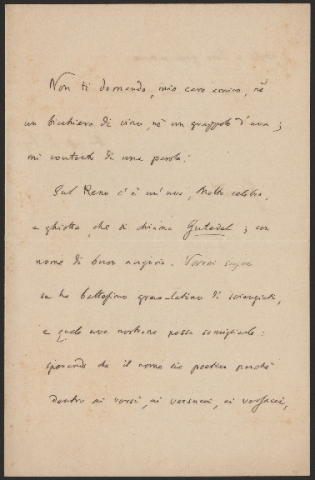 Non ti domando, mio caro amico, nè
un bicchiere di vino, nè un grappolo d'uva;
mi contento di una parola.
Sul Reno c'è un'uva, molto celebre
e ghiotta, che si chiama Gutedel; con
nome di buon augurio. Vorrei sapere
se ha battesimo
e quale uva nostrana possa somigliarle:
sperando che il nome sia poetico perchè
dentro ai versi, ai versucci, ai versacci,